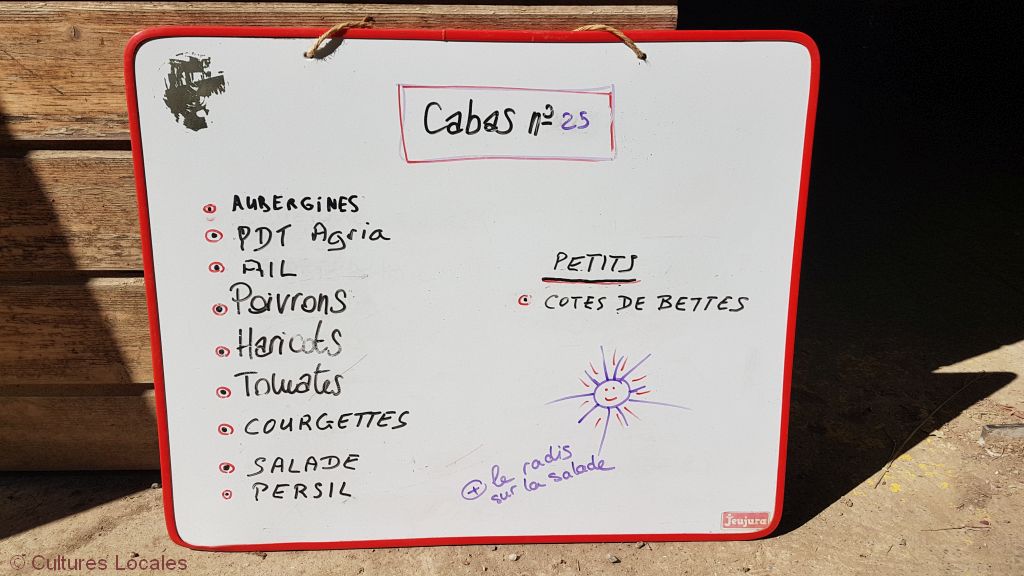 Cabas nº 25
AUBERGINES
PDT Agria
AIL
Poivrons
Haricots
Tomates
COURGETTES
SALADE
PERSIL
PETITS
COTES DE BETTES
+ le radis
sur la salade
Jeujura
© Cultures Locales